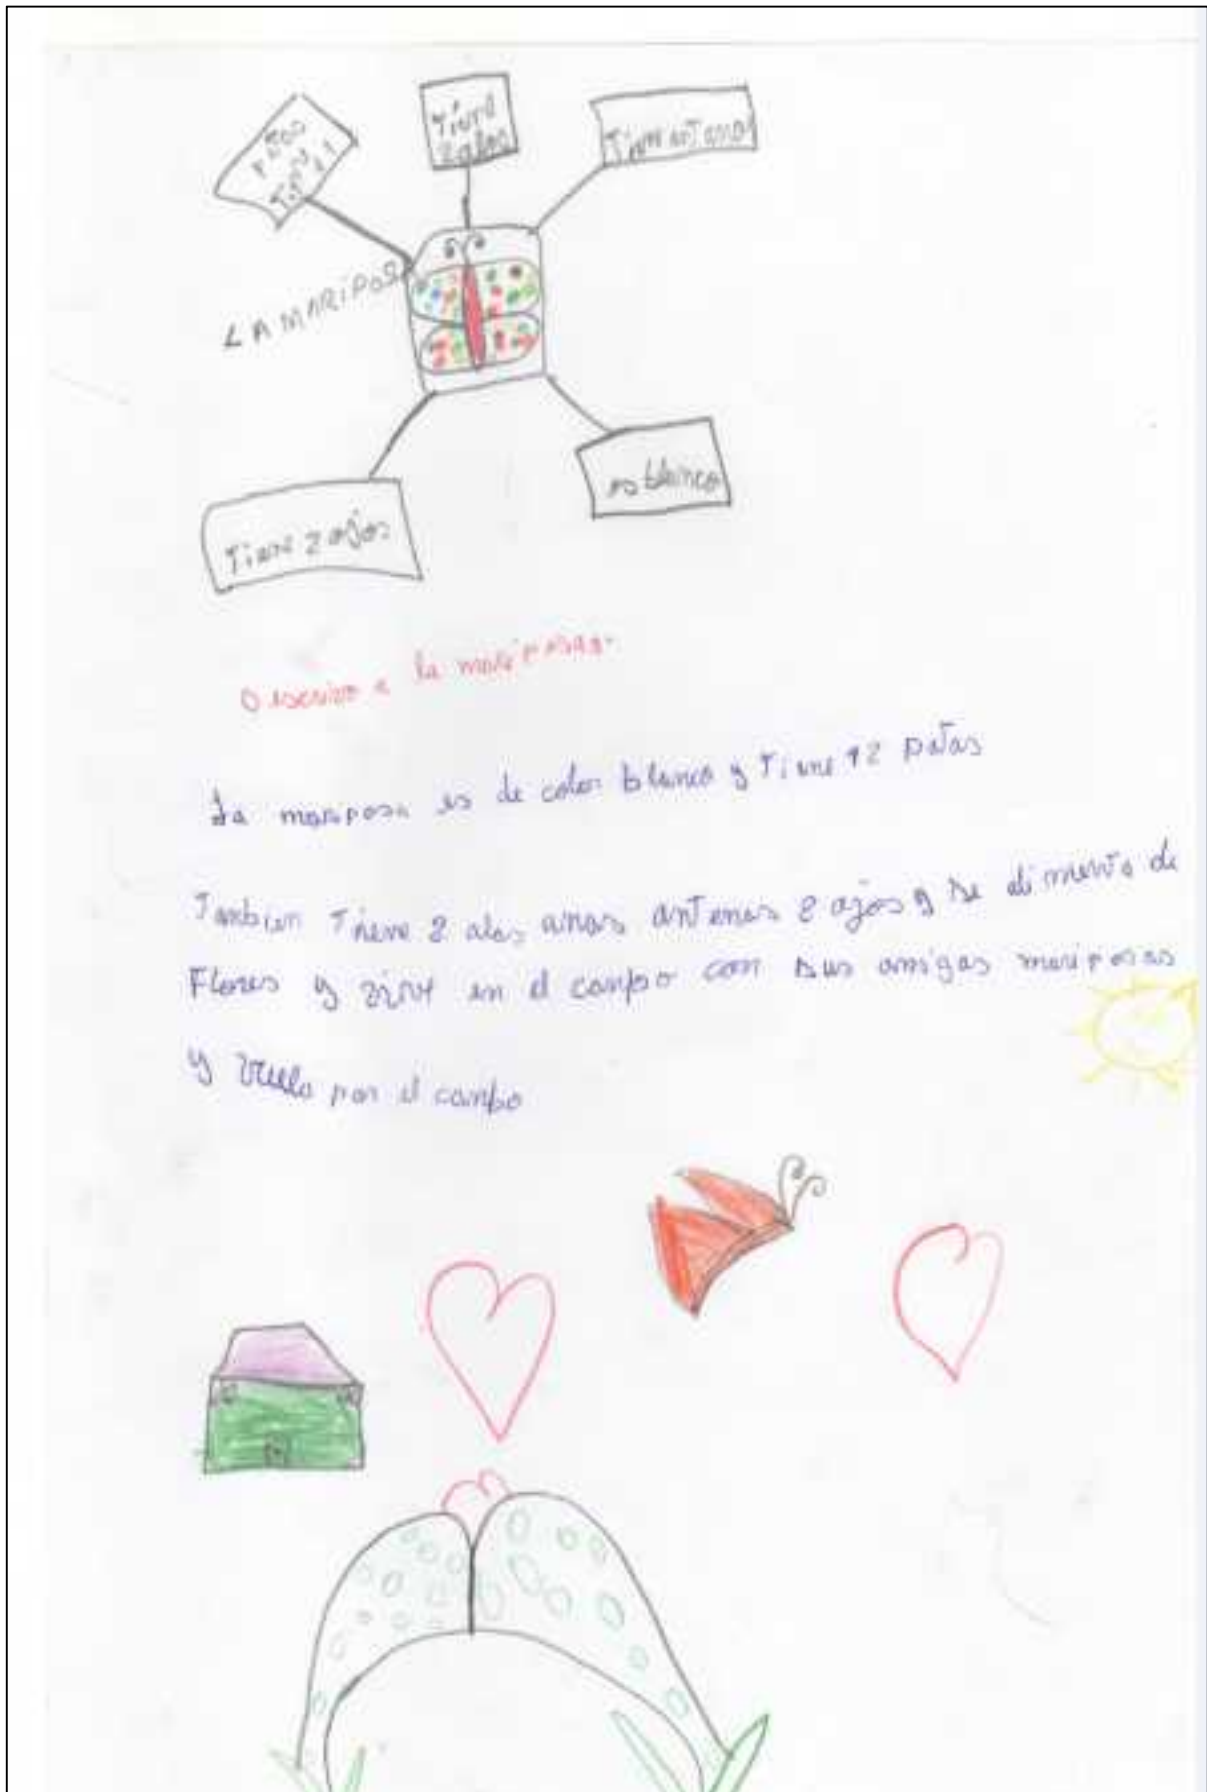 patas
Tiene
Tiene
2 alas
Tiene antenas
LA MARIPOSA
es blanco
Tiene 2 ojos
Describo a la mariposas.
La mariposa es de color blanco y Tiene 12 patas
Tanbien Tiene 2 alas antenas 2 ojos y se alimenta de
Flores y vive en el canpo con sus amigas mariposas
y vuela por el canpo